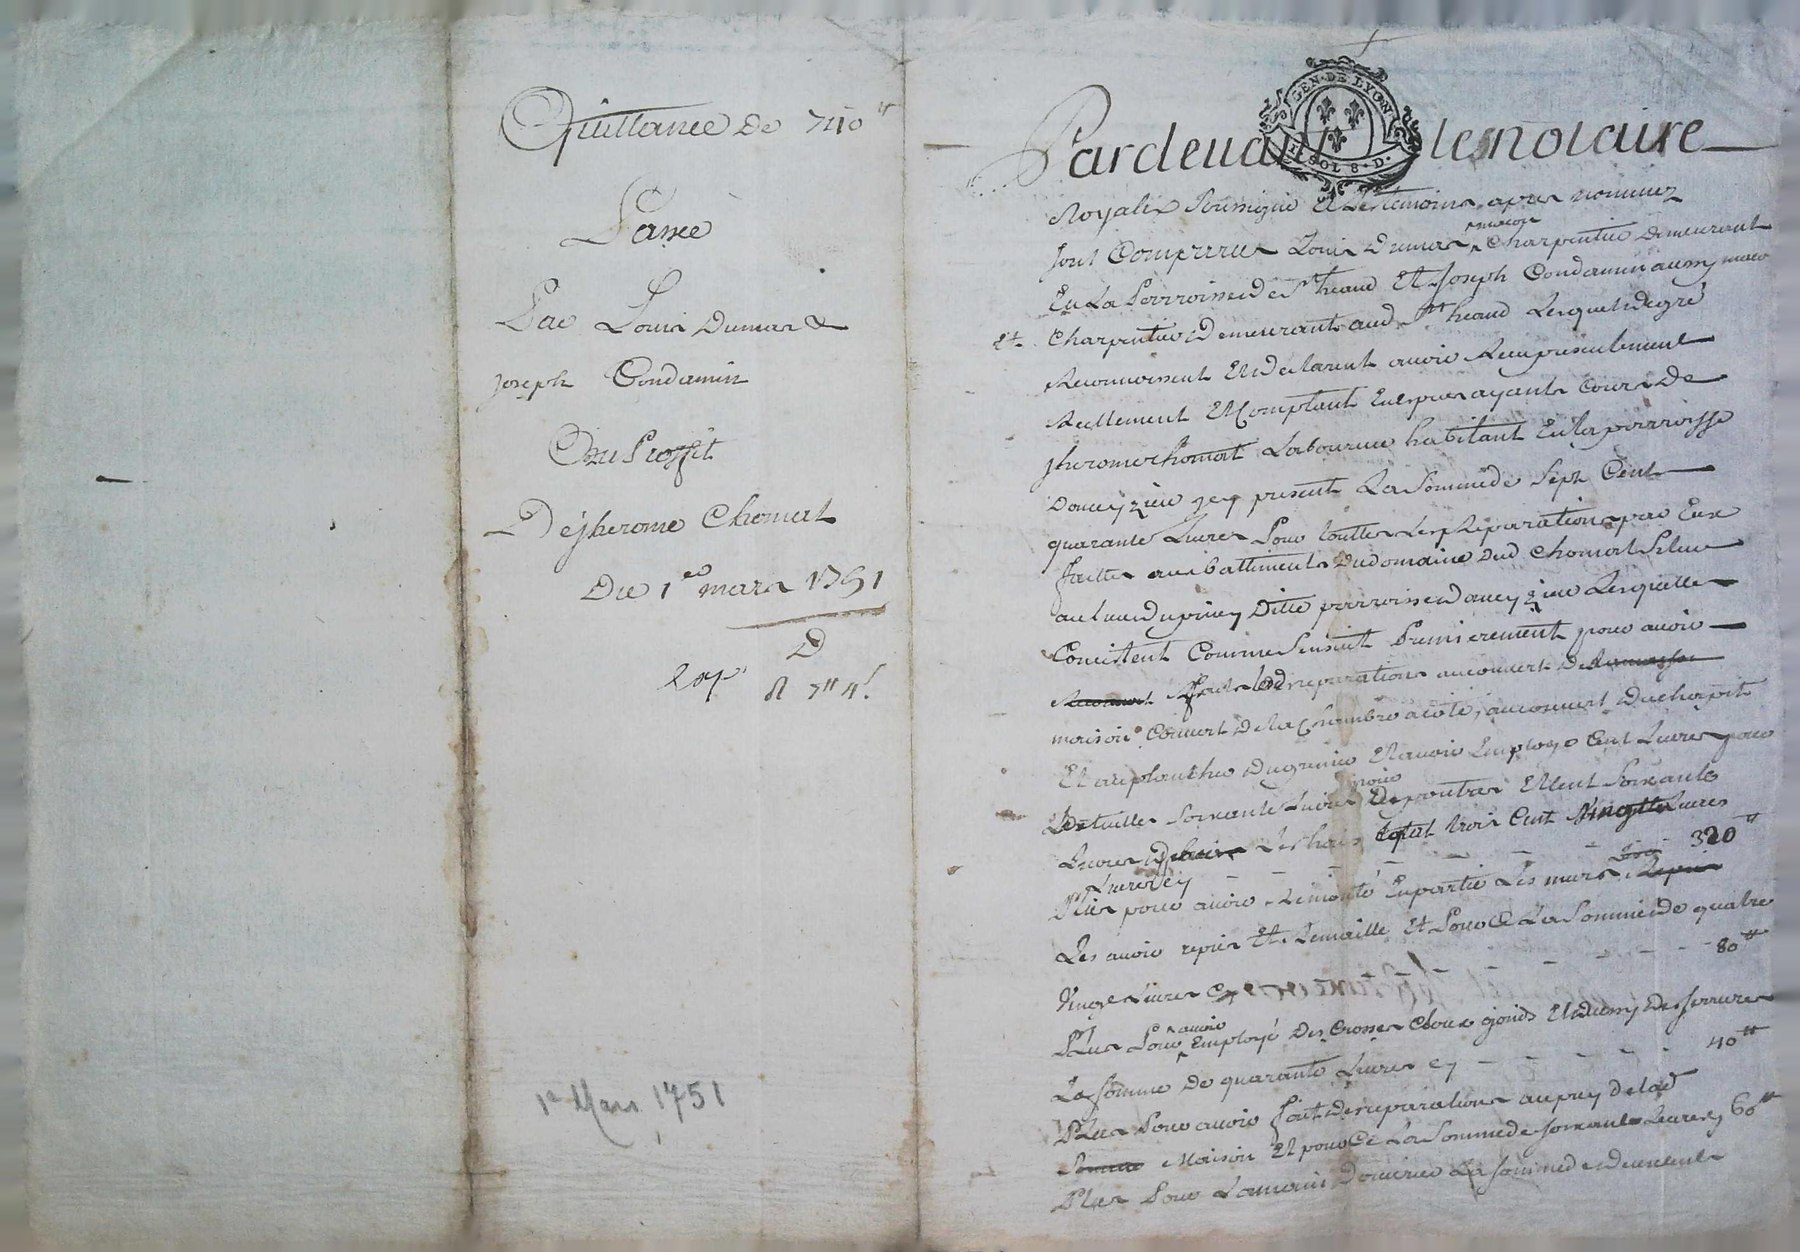 Quittance de 740ᵗᵗ
Passé
Par Louis Dumas &
Joseph Condamin
Au Proffit
De jherome Chomat
Du 1er mars 1751
D
R 7ᵗᵗ 4ˢ
1er Mars 1751
GEN · DE LYON
SOL 8 · D ·
Pardevant le notaire
Royal soussigné et les temoins apres nommez
sont Comparus Louis Dumas maitre Charpentier demeurant
En La Parroisse de St heand Et Joseph Condamin aussy maitre
Charpentier Demeurant aud St heand Lesquels de gré
Reconnoissent Et declarent avoir Receu presentement
Reellement Et Comptant En Especes ayants Cours De
jherome Chomat Laboureur habitant En la parroisse
present La Somme de Sept Cent
quarante Livres Pour touttes Les Reparations par Eux
faittes aux battiments Du domaine Dud Chomat Situé
au lieu Dite parroisse Lesquelles
Consistent Comme Sensuit Premierement pour avoir
fait des reparations au couvert De
maison, Couvert De la Chambre a coté, au couvert Du chapit
Et au planché Du grenier Et avoir Employé Cent Livres pour
Soixante Livres pour Des poutres Et Cent Soixante
Livres trois Cent Vingt Livres
Livres cy 320ᵗᵗ
Plus pour avoir remonté En partie Les murs
Les avoir repris Et Et Pour Ce La Somme de quatre
Vingt Livres cy 80ᵗᵗ
Plus Pour avoir Employé Des Crosses Cloux gonds Et Des serrures
La somme de quarante Livres cy 40ᵗᵗ
Plus Pour avoir fait Des reparations de lad
Maison Et pour Ce La Somme de soixante Livres cy 60ᵗᵗ
Plus Pour La main Douvrier La somme de deux cent